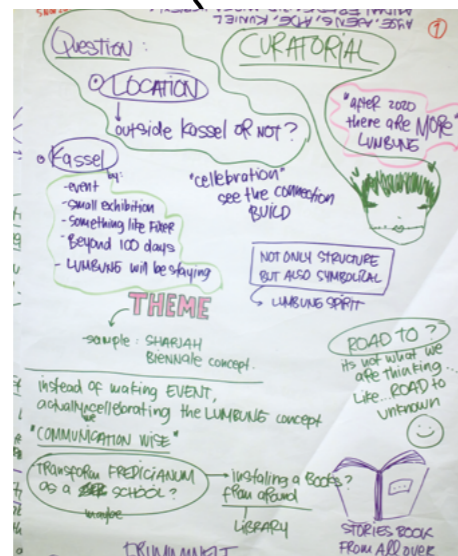 AYSE, IRENG, ADE, KUNIEL
①
Question:
LOCATION
outside Kassel OR NOT?
CURATORIAL
"after 2020
there are MORE
LUMBUNG
Kassel
by:
-event
-small exhibition
-something like Fixer
-Beyond 100 days
- LUMBUNG will be staying
"cellebration"
see the connection
BUILD
NOT ONLY STRUCTURE
BUT ALSO SYMBOLICAL
LUMBUNG SPIRIT
THEME
-sample: SHARJAH
Biennale concept.
ROAD TO?
its not what we
are thinking...
Like...ROAD to
unknown
instead of making EVENT,
actually cellebrating the LUMBUNG concept
"COMMUNICATION WISE"
TRANSFORM FREDICIANUM
as a SCHOOL?
maybe
Instaling a Books?
from around
LIBRARY
STORIES BOOK
FROM All over